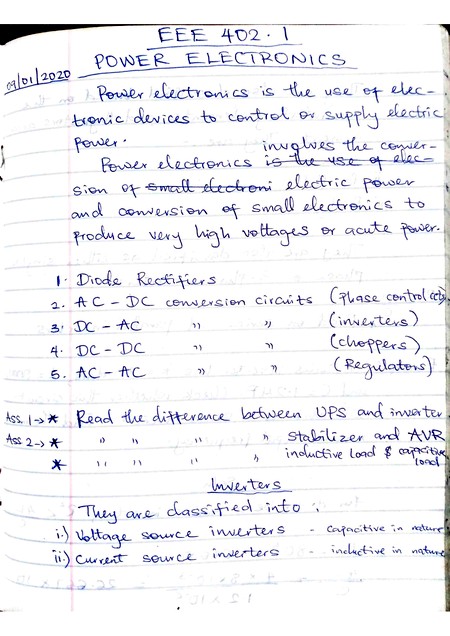 EEE 402.1
POWER ELECTRONICS
09/01/2020
Power electronics is the use of elec-
tronic devices to control or supply electric
power.
involves the conver-
Power electronics is the use of elec-
sion of small electroni electric power
and conversion of small electronics to
produce very high voltages or acute power.
1. Diode Rectifiers
2. AC - DC conversion circuits (Phase control ccts).
3. DC - AC " " (inverters)
4. DC - DC " " (choppers)
5. AC - AC " " (Regulators)
Ass. 1 → * Read the difference between UPS and inverter
Ass 2 → * " " " " Stabilizer and AVR
* " " " " inductive load & capacitive
load
Inverters
They are classified into:
i.) Voltage source inverters - capacitive in nature
ii.) Current source inverters - inductive in nature